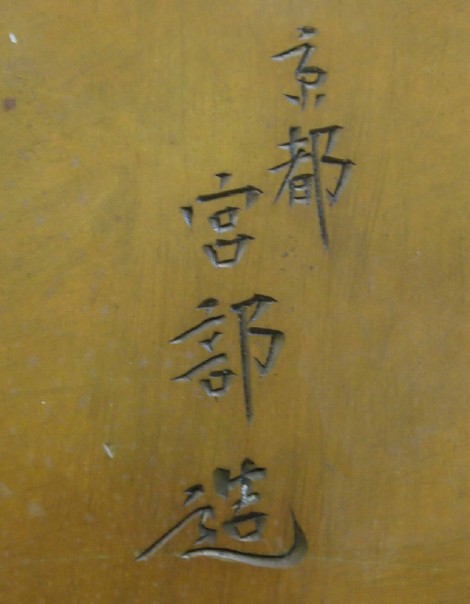 京都
宮部造